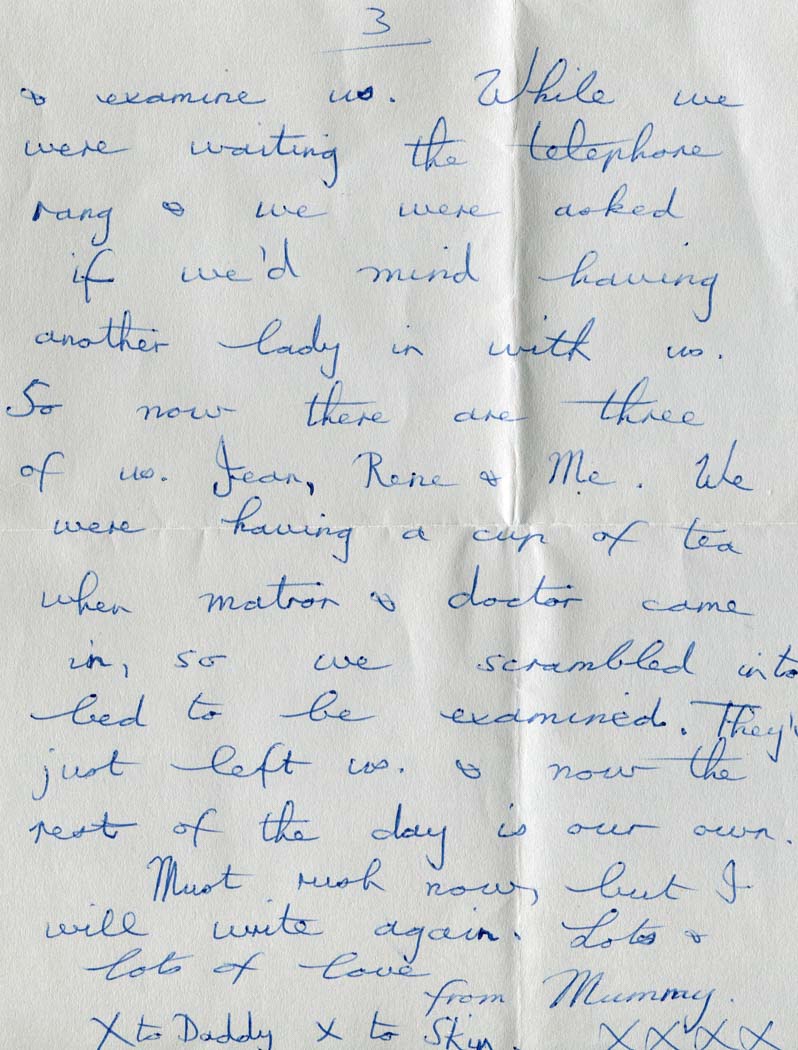 3
& examine us. While we
were waiting the telephone
rang & we were asked
if we'd mind having
another lady in with us.
So now there are three
of us. Jean, Rene & Me. We
were having a cup of tea
when matron & doctor came
in, so we scrambled into
bed to be examined. They'v
just left us. & now the
rest of the day is our own.
Must rush now, but I
will write again. Lots &
lots of love
from Mummy.
X to Daddy X to Skin. X X X X